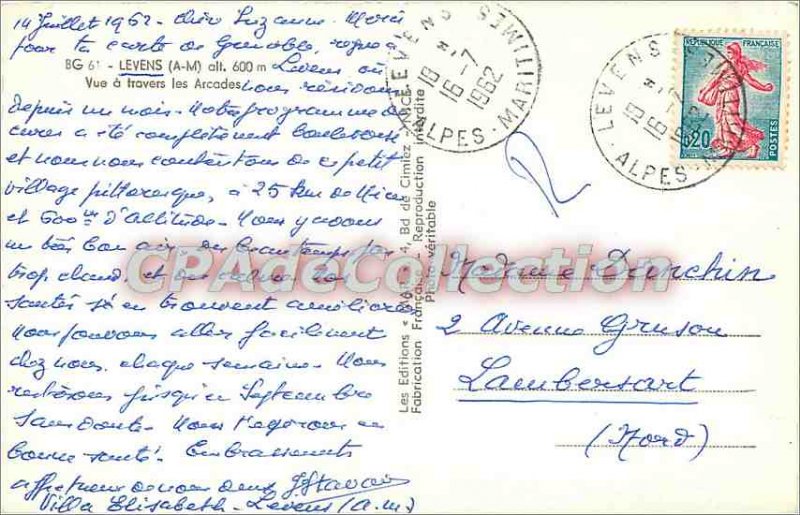 14 Juillet 1962 - chère Suzanne - Merci
pour ta carte de Grenoble, reçue à
BG 61 - LEVENS (A-M) alt. 600 m
Levens, où
Vue à travers les Arcades
nous résidons
depuis un mois - Notre programme de
cures a été complètement bouleversé
et nous nous contentons de ce petit
village pittoresque, à 25 km de Nice
et 600m d'altitude - Nous y avons
un très bon air, du beau temps pas
trop chaud, et
santés s'en trouvent améliorées
Nous pouvons aller facilement
chez nous, chaque semaine - Nous
resterons jusqu'en Septembre
sans doute - Nous t'espérons en
bonne santé. Embrassements
affectueux de nous deux
Villa Elisabeth - Levens (a.m)
Les Editions « - 4, Bd de Cimiez - NICE
Fabrication Française - Reproduction Interdite
Photo véritable
LEVENS
ALPES-MARITIMES
18 H
16-7
1962
LEVENS
ALPES-MARITIMES
18 H
16-7
1962
REPUBLIQUE FRANÇAISE
0,20
POSTES
Madame Danchin
2 Avenue Gruson
Lambersart
(Nord)
CPAdeCollection